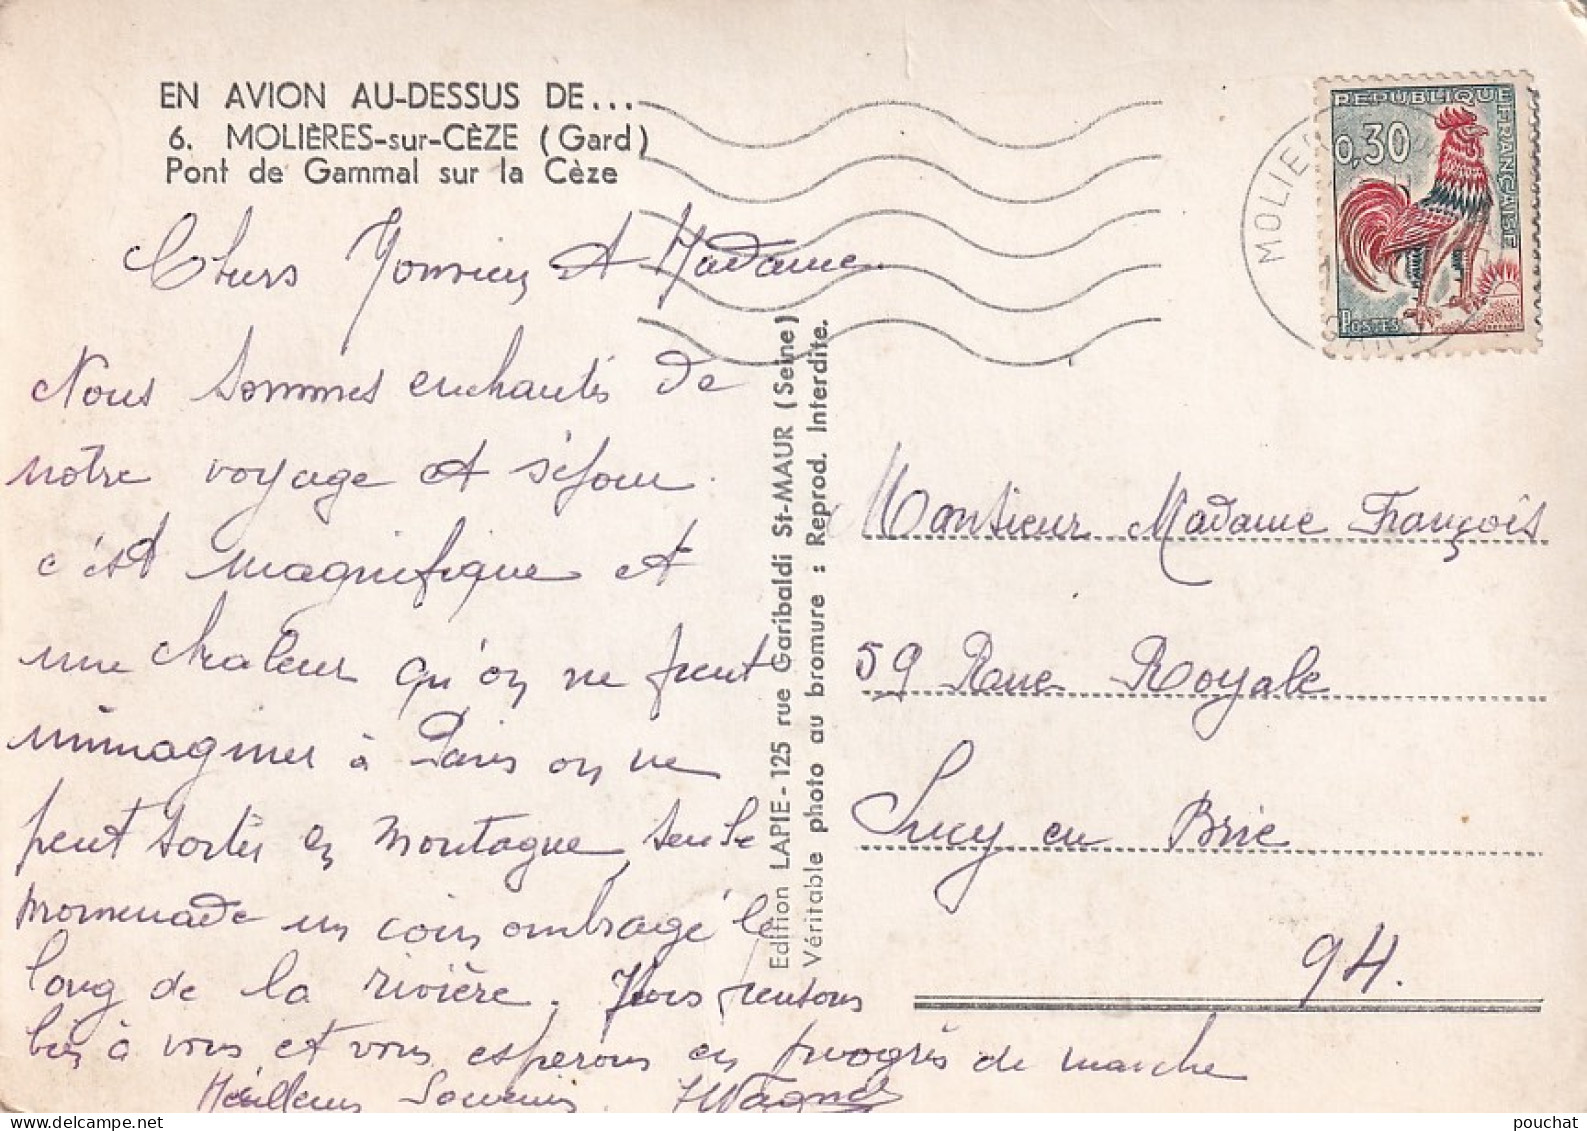 EN AVION AU-DESSUS DE...
6. MOLIÈRES-sur-CÈZE (Gard)
Pont de Gammal sur la Cèze
Chers Monsieur et Madame
Nous sommes enchantés de
notre voyage et séjour.
c'est magnifique et
une chaleur qu'on ne peut
immaginer à Paris on ne
peut sortir en montagne, seule
promenade un coin ombragé le
long de la rivière. Nous pensons
bien à vous et vous esperons en progrès de marche
Meilleurs Souvenirs.
Edition LAPIE - 125 rue Garibaldi St-MAUR (Seine)
Véritable photo au bromure : Reprod. Interdite.
REPUBLIQUE FRANÇAISE
0,30
POSTES
MOLIER
GARD
Monsieur Madame François
59 Rue Royale
Sucy en Brie
94.
pouchat